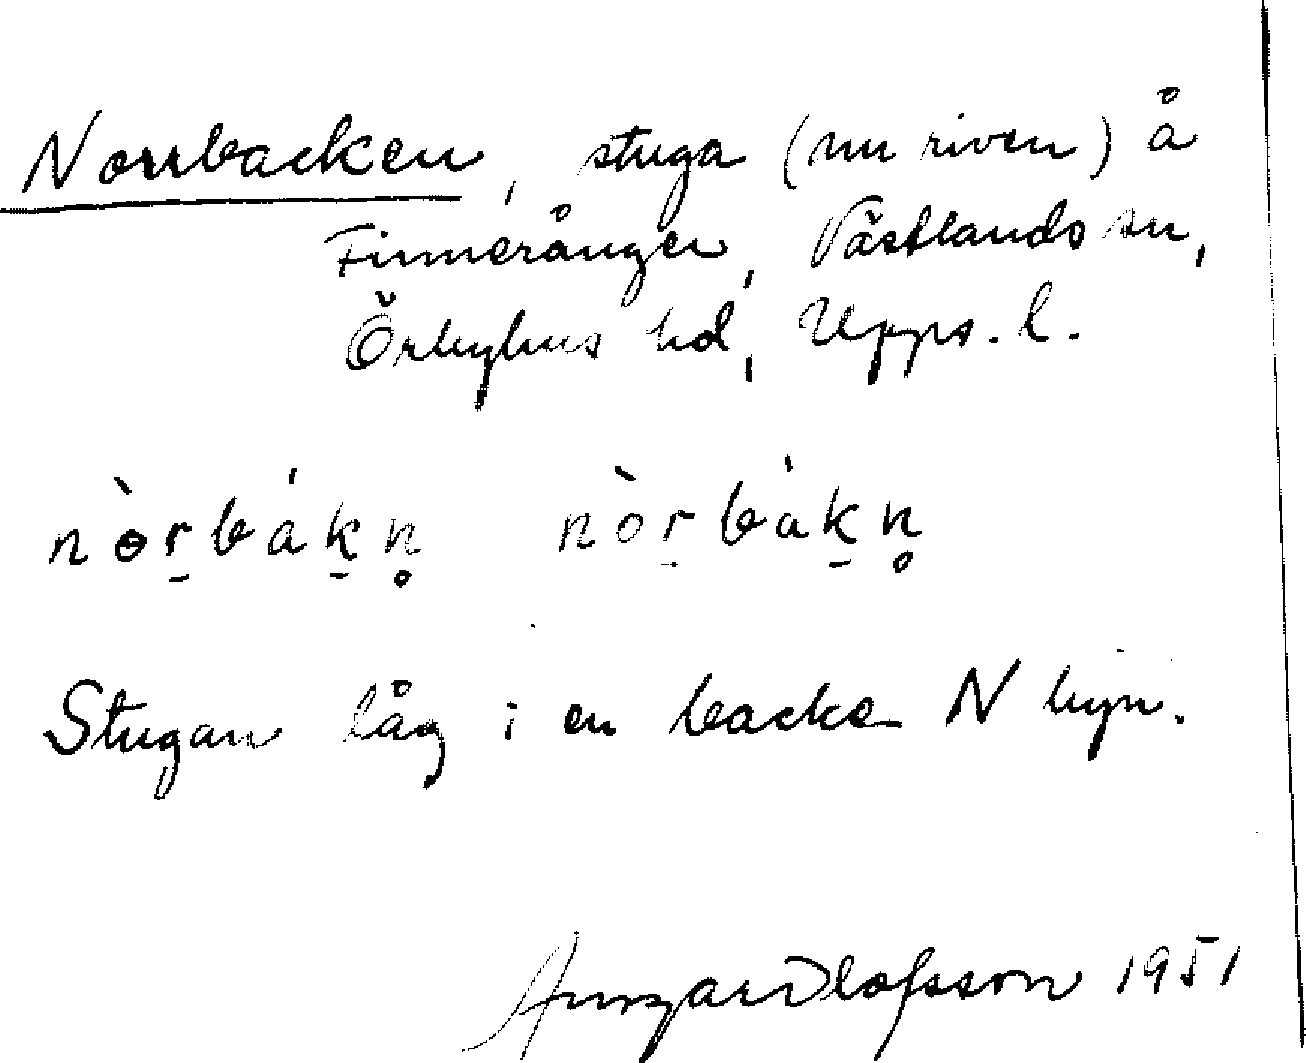 Norrbacken, stuga (nu riven) å
Finneränger, Västlands sn,
Örbyhus hd, Upps. l.
nòr̠bák̠n̥ nòr̠bàk̠n̥
Stugan låg i en backe N byn.
Ansgar Olofsson 1951